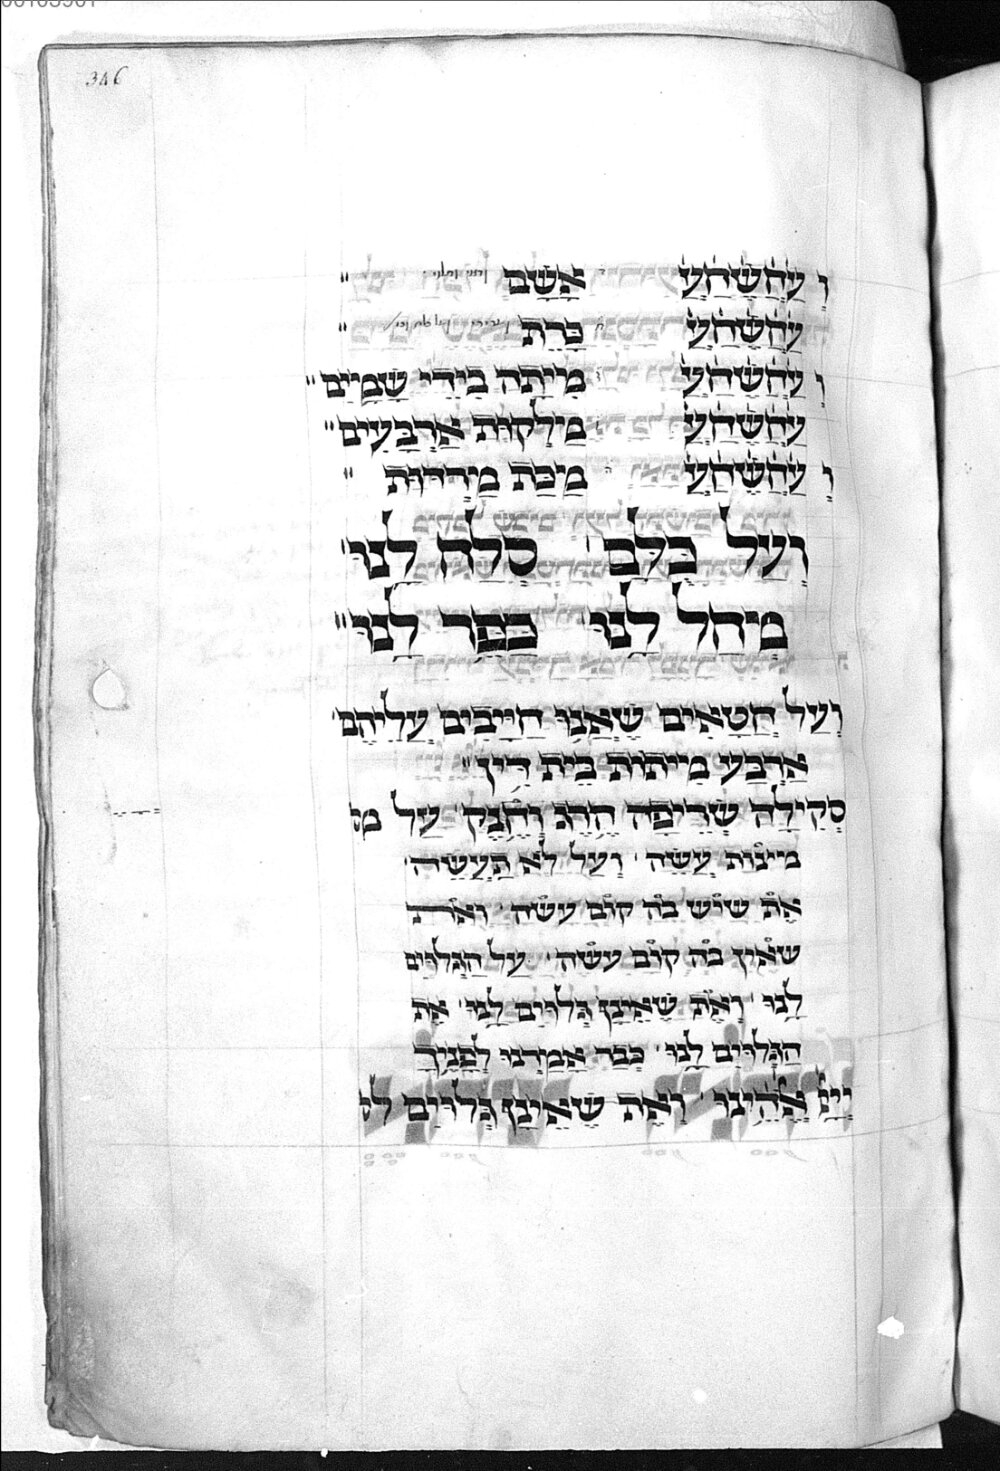 346
וְ עַׄחַׄשַׁׄחַׄעַׄ אָשָׁם
עַׄחַׄשַׁׄחַׄעַׄ כָּרֵת
וְ עַׄחַׄשַׁׄחַׄעַׄ מִיתָה בִּידֵי שָׁמַיִם
עַׄחַׄשַׁׄחַׄעַׄ מַלְקוּת אַרְבָּעִים
וְ עַׄחַׄשַׁׄחַׄעַׄ מַכַּת מַרְדּוּת
וְעַל כֻּלָּם סְלַח לָנוּ
מְחַל לָנוּ כַּפֵּר לָנוּ
וְעַל חֲטָאִים שֶׁאָנוּ חַיָּיבִים עֲלֵיהֶם
אַרְבַּע מִיתוֹת בֵּית דִּין
סְקִילָה שְׂרֵיפָה הֶרֶג וְחֶנֶק עַל מ
מִצְוֹת עֲשֵׂה וְעַל לֹא תַעֲשֶׂה
אֶת שיש בה קום עשה ואת
שאין בה קום עשה על הַגְּלוּיִם
לָנוּ וְאֶת שֶׁאֵינָן גְּלוּיִם לָנוּ אֶת
הַגְּלוּיִם לָנוּ כְּבָר אֲמַרְנוּ לְפָנֶיךָ
אֱלֹהֵינוּ וְאֶת שֶׁאֵינָן גְּלוּיִם ל